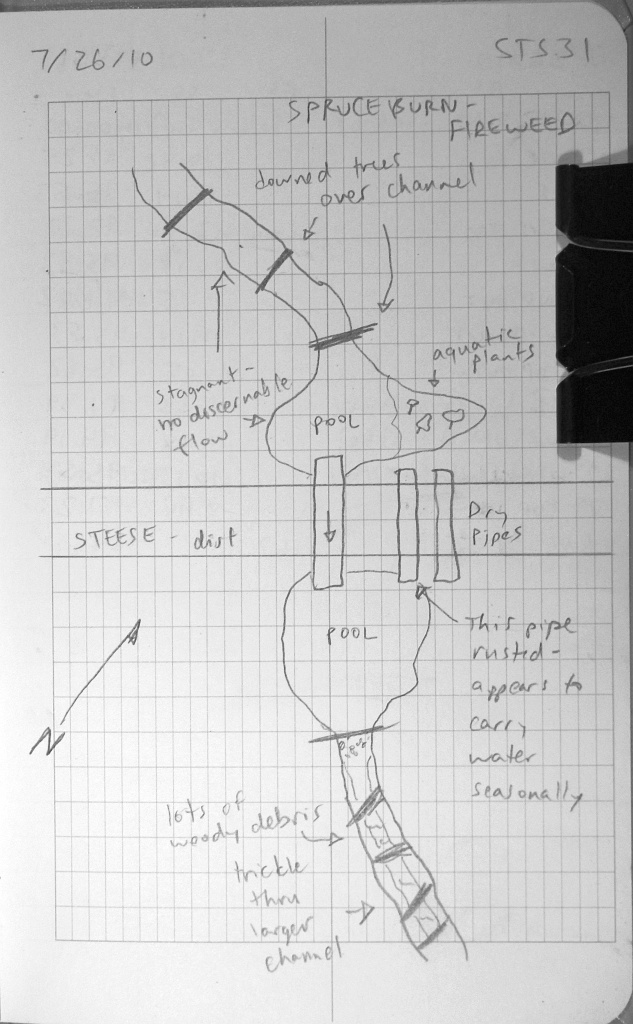 7/26/10
STS31
SPRUCE BURN -
FIREWEED
downed trees
over channel
aquatic
plants
stagnant -
no discernable
flow
POOL
STEESE - dirt
Dry
Pipes
POOL
This pipe
rusted -
appears to
carry
water
seasonally
N
lots of
woody debris
trickle
thru
larger
channel